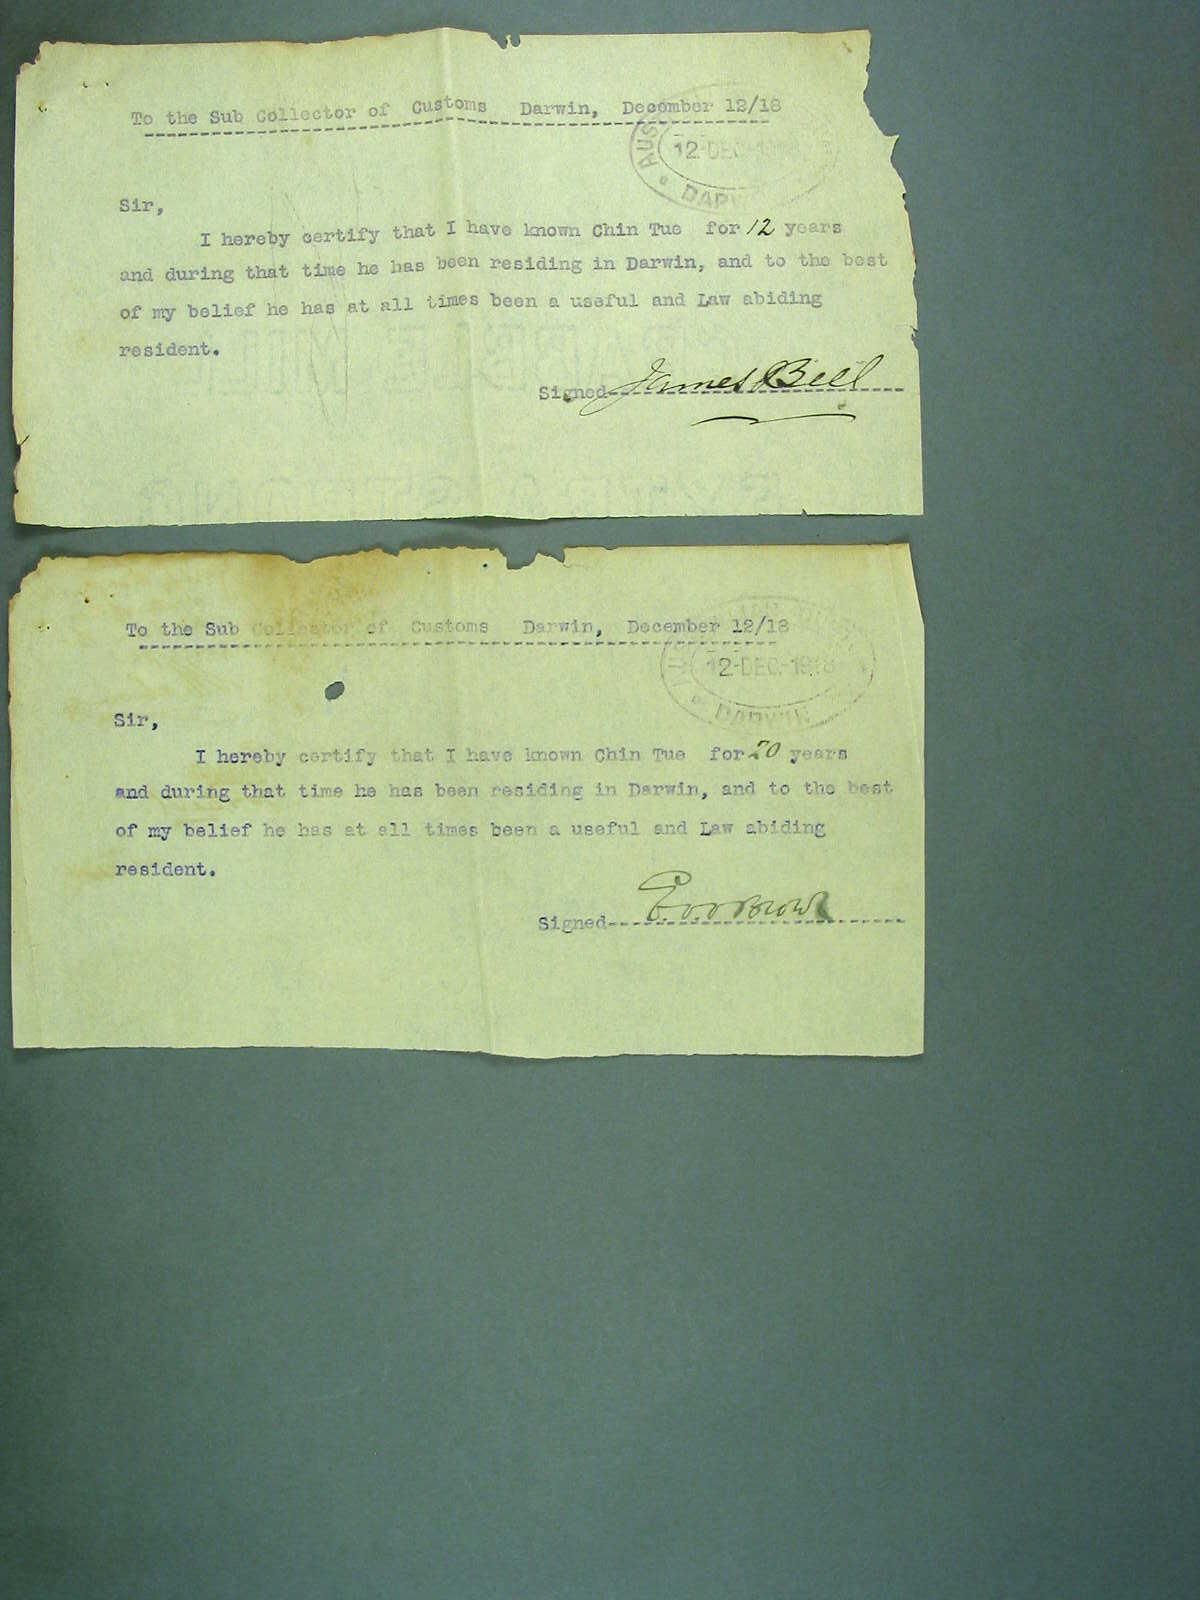 To the Sub Collector of Customs Darwin, December 12/18
AUS
12-DEC-1918
DARWIN
Sir,
I hereby certify that I have known Chin Tue for 12 years
and during that time he has been residing in Darwin, and to the best
of my belief he has at all times been a useful and Law abiding
resident.
Signed James Bell
To the Sub Collector of Customs Darwin, December 12/18
12-DEC-1918
DARWIN
Sir,
I hereby certify that I have known Chin Tue for 20 years
and during that time he has been residing in Darwin, and to the best
of my belief he has at all times been a useful and Law abiding
resident.
Signed